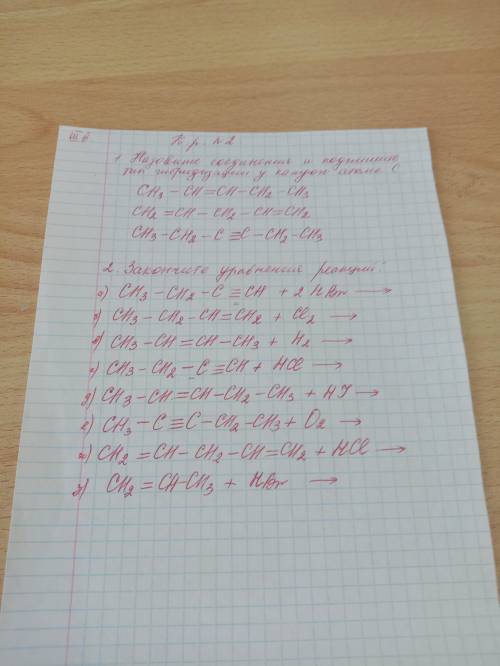 К. р. №2
1. Назовите соединения и подпишите
тип гибридизации у каждого атома С
CH3 – CH = CH – CH2 – CH3
CH2 = CH – CH2 – CH = CH2
CH3 – CH2 – C ≡ C – CH2 – CH3
2. Закончите уравнения реакций:
а) CH3 – CH2 – C ≡ CH + 2 HBr →
б) CH3 – CH2 – CH = CH2 + Cl2 →
в) CH3 – CH = CH – CH3 + H2 →
г) CH3 – CH2 – C ≡ CH + HCl →
д) CH3 – CH = CH – CH2 – CH3 + HJ →
е) CH3 – C ≡ C – CH2 – CH3 + O2 →
ж) CH2 = CH – CH2 – CH = CH2 + HCl →
з) CH2 = CH – CH3 + HBr →